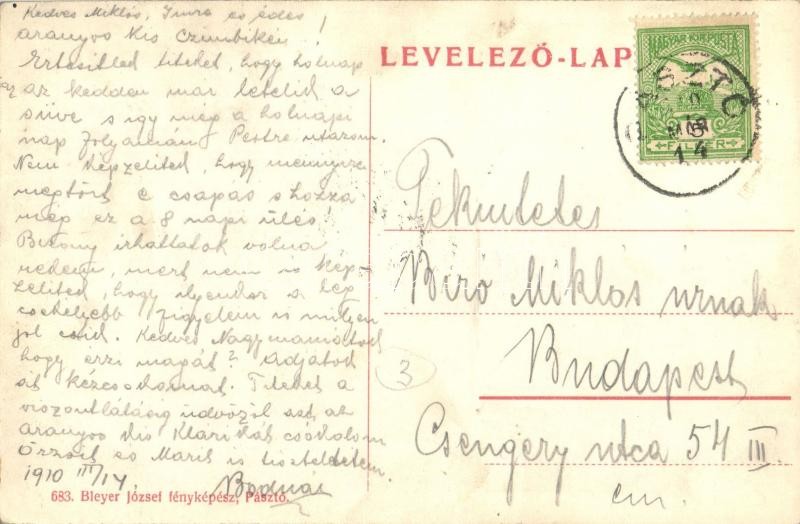 Kedves Miklós, Imre és édes
aranyos kis Czimbikém!
Értesitlek titeket, hogy holnap
az kedden már letelik a
süve s igy még a holnapi
nap folyamán Pestre utazom.
Nem képzelited, hogy mennyire
megtört e csapás s hozzá
még ez a 8 napi ülés!
Bizony irhattatok volna
nekem, mert nem is kép-
zelited, hogy ilyenkor a leg
csekélyebb figyelem is milyen
jól esik. Kedves Nagymamátok
hogy érzi magát? Adjátok
át kézcsókomat. Titeket a
viszontlátásig üdvözöl azt az
aranyos kis Klárikát csókolom
Őrzsit és Marit is tisztelettem
1910 III/14. Bodnár
683. Bleyer József fényképész, Pásztó.
LEVELEZŐ-LAP
MAGYAR KIR. POSTA
PÁSZTÓ
MÁR
14
FILLÉR
Tekintetes
Biró Miklós urnak
Budapest
Csengery utca 54 III.
em.
3